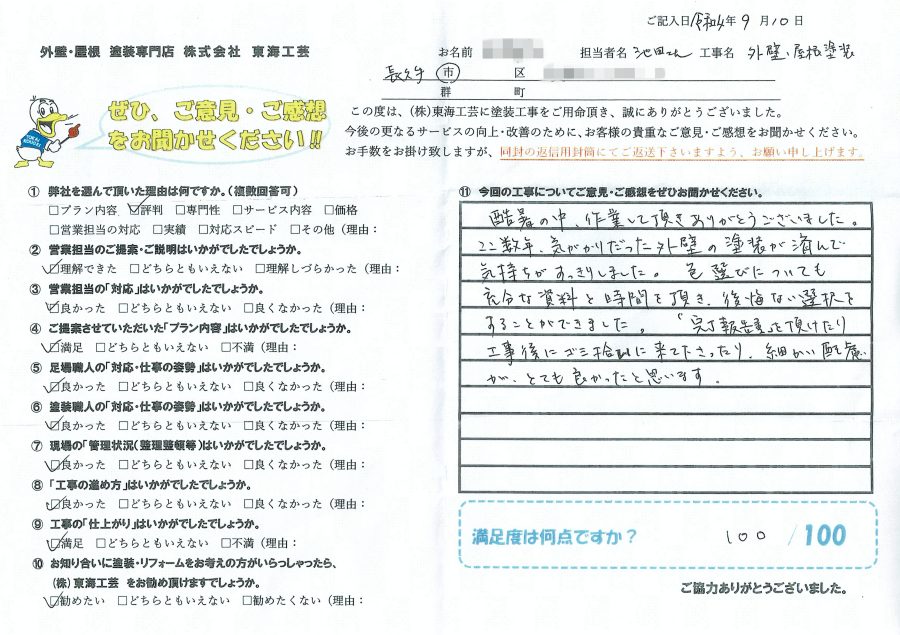 ご記入日 令和4年 9 月 10 日
外壁・屋根 塗装専門店 株式会社 東海工芸
お名前 担当者名 池田さん 工事名 外壁・屋根塗装
長久手 市 区
群 町
ぜひ、ご意見・ご感想
をお聞かせください!!
この度は、(株)東海工芸に塗装工事をご用命頂き、誠にありがとうございました。
今後の更なるサービスの向上・改善のために、お客様の貴重なご意見・ご感想をお聞かせください。
お手数をお掛け致しますが、同封の返信用封筒にてご返送下さいますよう、お願い申し上げます。
① 弊社を選んで頂いた理由は何ですか。(複数回答可)
□プラン内容 ☑評判 □専門性 □サービス内容 □価格
□営業担当の対応 □実績 □対応スピード □その他(理由:
② 営業担当のご提案・ご説明はいかがでしたでしょうか。
☑理解できた □どちらともいえない □理解しづらかった(理由:
③ 営業担当の「対応」はいかがでしたでしょうか。
☑良かった □どちらともいえない □良くなかった(理由:
④ ご提案させていただいた「プラン内容」はいかがでしたでしょうか。
☑満足 □どちらともいえない □不満(理由:
⑤ 足場職人の「対応・仕事の姿勢」はいかがでしたでしょうか。
☑良かった □どちらともいえない □良くなかった(理由:
⑥ 塗装職人の「対応・仕事の姿勢」はいかがでしたでしょうか。
☑良かった □どちらともいえない □良くなかった(理由:
⑦ 現場の「管理状況(整理整頓等)はいかがでしたでしょうか。
☑良かった □どちらともいえない □良くなかった(理由:
⑧ 「工事の進め方」はいかがでしたでしょうか。
☑良かった □どちらともいえない □良くなかった(理由:
⑨ 工事の「仕上がり」はいかがでしたでしょうか。
☑満足 □どちらともいえない □不満(理由:
⑩ お知り合いに塗装・リフォームをお考えの方がいらっしゃったら、
(株)東海工芸 をお勧め頂けますでしょうか。
☑勧めたい □どちらともいえない □勧めたくない(理由:
⑪ 今回の工事についてご意見・ご感想をぜひお聞かせください。
酷暑の中、作業して頂きありがとうございました。
ここ数年、気がかりだった外壁の塗装が済んで
気持ちがすっきりしました。 色選びについても
充分な資料と時間を頂き、後悔ない選択を
することができました。 「完了報告書」を頂けたり
工事後にゴミ拾いに来て下さったり、細かい配慮
が、とても良かったと思います。
満足度は何点ですか? 100 /100
ご協力ありがとうございました。